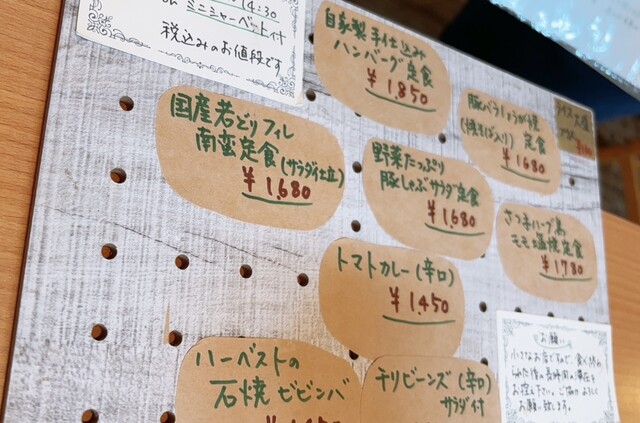 14:30
ミニシャーベット付
税込みのお値段です
自家製手仕込み
ハンバーグ定食
¥1,850
豚バラしょうが焼
定食
¥1,680
国産若どりフィレ
南蛮定食(サラダ仕立)
¥1,680
野菜たっぷり
豚しゃぶサラダ定食
¥1,680
さつまハーブ鳥
もも塩焼定食
¥1780
トマトカレー(辛口)
¥1,450
ハーベストの
石焼ビビンバ
チリビーンズ(辛口)
サラダ付
お願い
小さなお店ですので、食べ終わ
お願い致します。